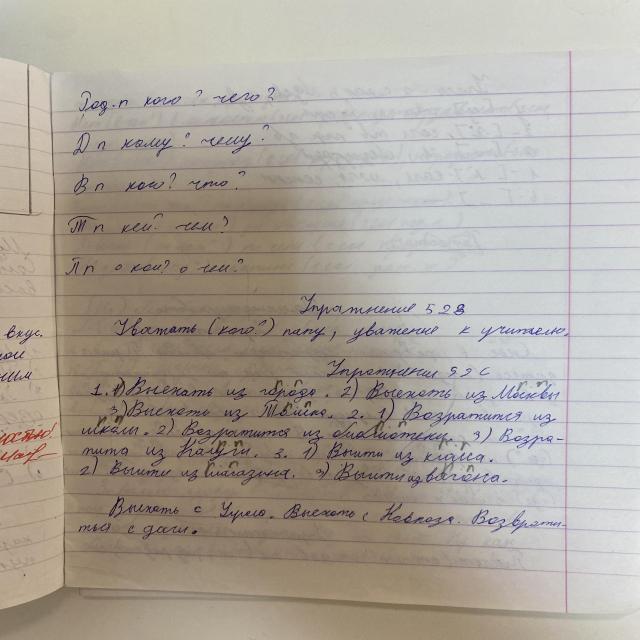 Род.п кого? чего?
Д п кому? чему?
В п кого? что?
Т п кем? чем?
П п о ком? о чем?
вкус.
ной
ним
Упражнение 528
Уважать (кого?) папу, уважение к учителю.
Упражнение
1. 1) Выехать из города. 2) Выехать из Москвы
3) Выехать из 2. 1) Возратится из
школы. 2) Возратится из библиотеки. 3) Возра-
тита из Калуги. 3. 1) Выйти из
2) Выйти из магазина. 3) Выйти из вагона.
Выехать с Урала. Выехать с Кавказа. Возврати-
ться с дачи.